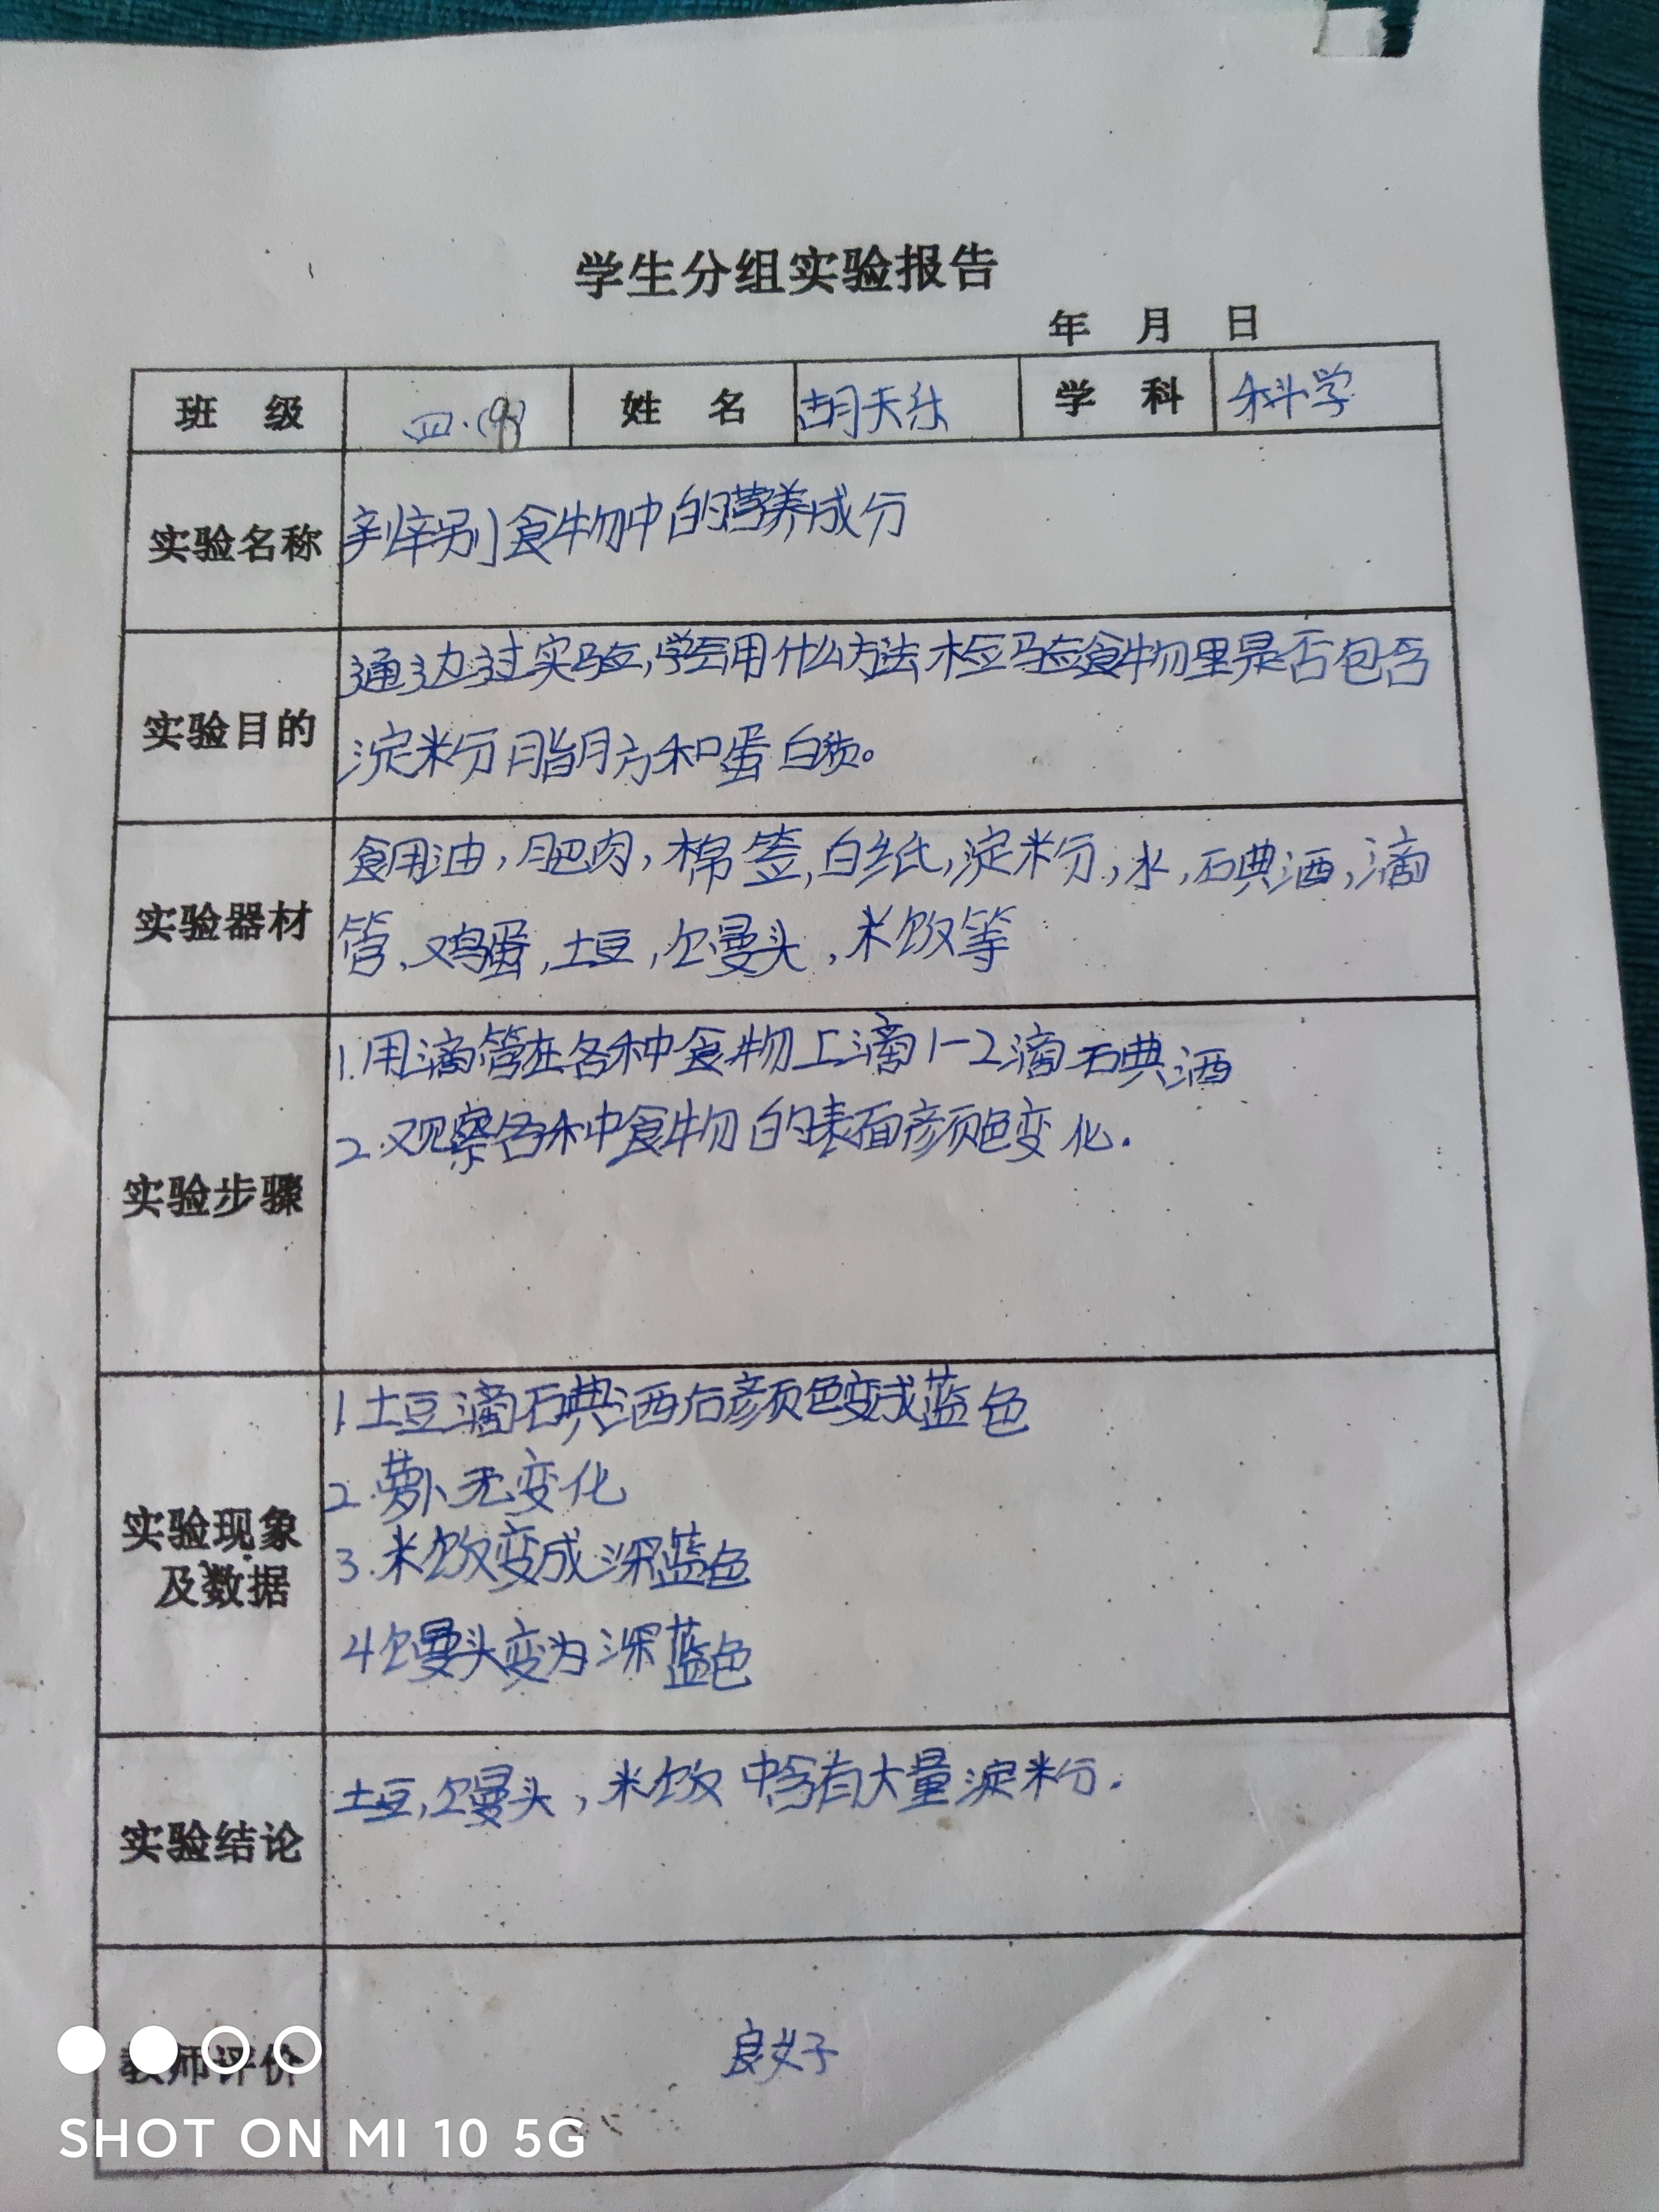 学生分组实验报告
年 月 日
班 级 四.(9) 姓 名 胡天 学 科 科学
实验名称 辨别食物中的营养成分
实验目的 通过实验,学会用什么方法检验食物里是否包含
淀粉脂肪和蛋白质。
实验器材 食用油,肥肉,棉签,白纸,淀粉,水,碘酒,滴
管,鸡蛋,土豆,馒头,米饭等
实验步骤 1.用滴管在各种食物上滴1-2滴碘酒
2.观察各种食物的表面颜色变化.
实验现象及数据 1.土豆滴碘酒后颜色变成蓝色
2.萝卜无变化
3.米饭变成深蓝色
4馒头变为深蓝色
实验结论 土豆,馒头,米饭中含有大量淀粉.
教师评价 良好
SHOT ON MI 10 5G